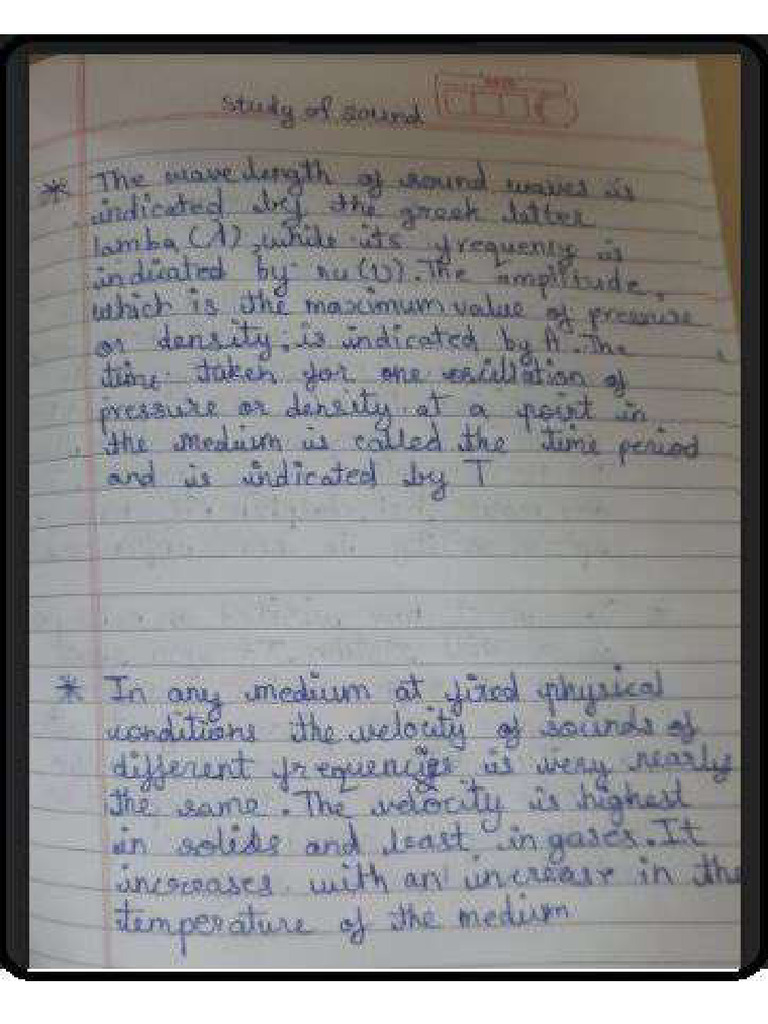 Study of sound
* The wave length of sound waves is
indicated by the greek letter
lamba (λ), while its frequency is
indicated by nu (υ). The amplitude,
which is the maximum value of pressure
or density, is indicated by A. The
time taken for one oscillation of
pressure or density at a point in
the medium is called the time period
and is indicated by T
* In any medium at fixed physical
conditions the velocity of sounds of
different frequencies is very nearly
the same. The velocity is highest
in solids and least in gases. It
increases with an increase in the
temperature of the medium